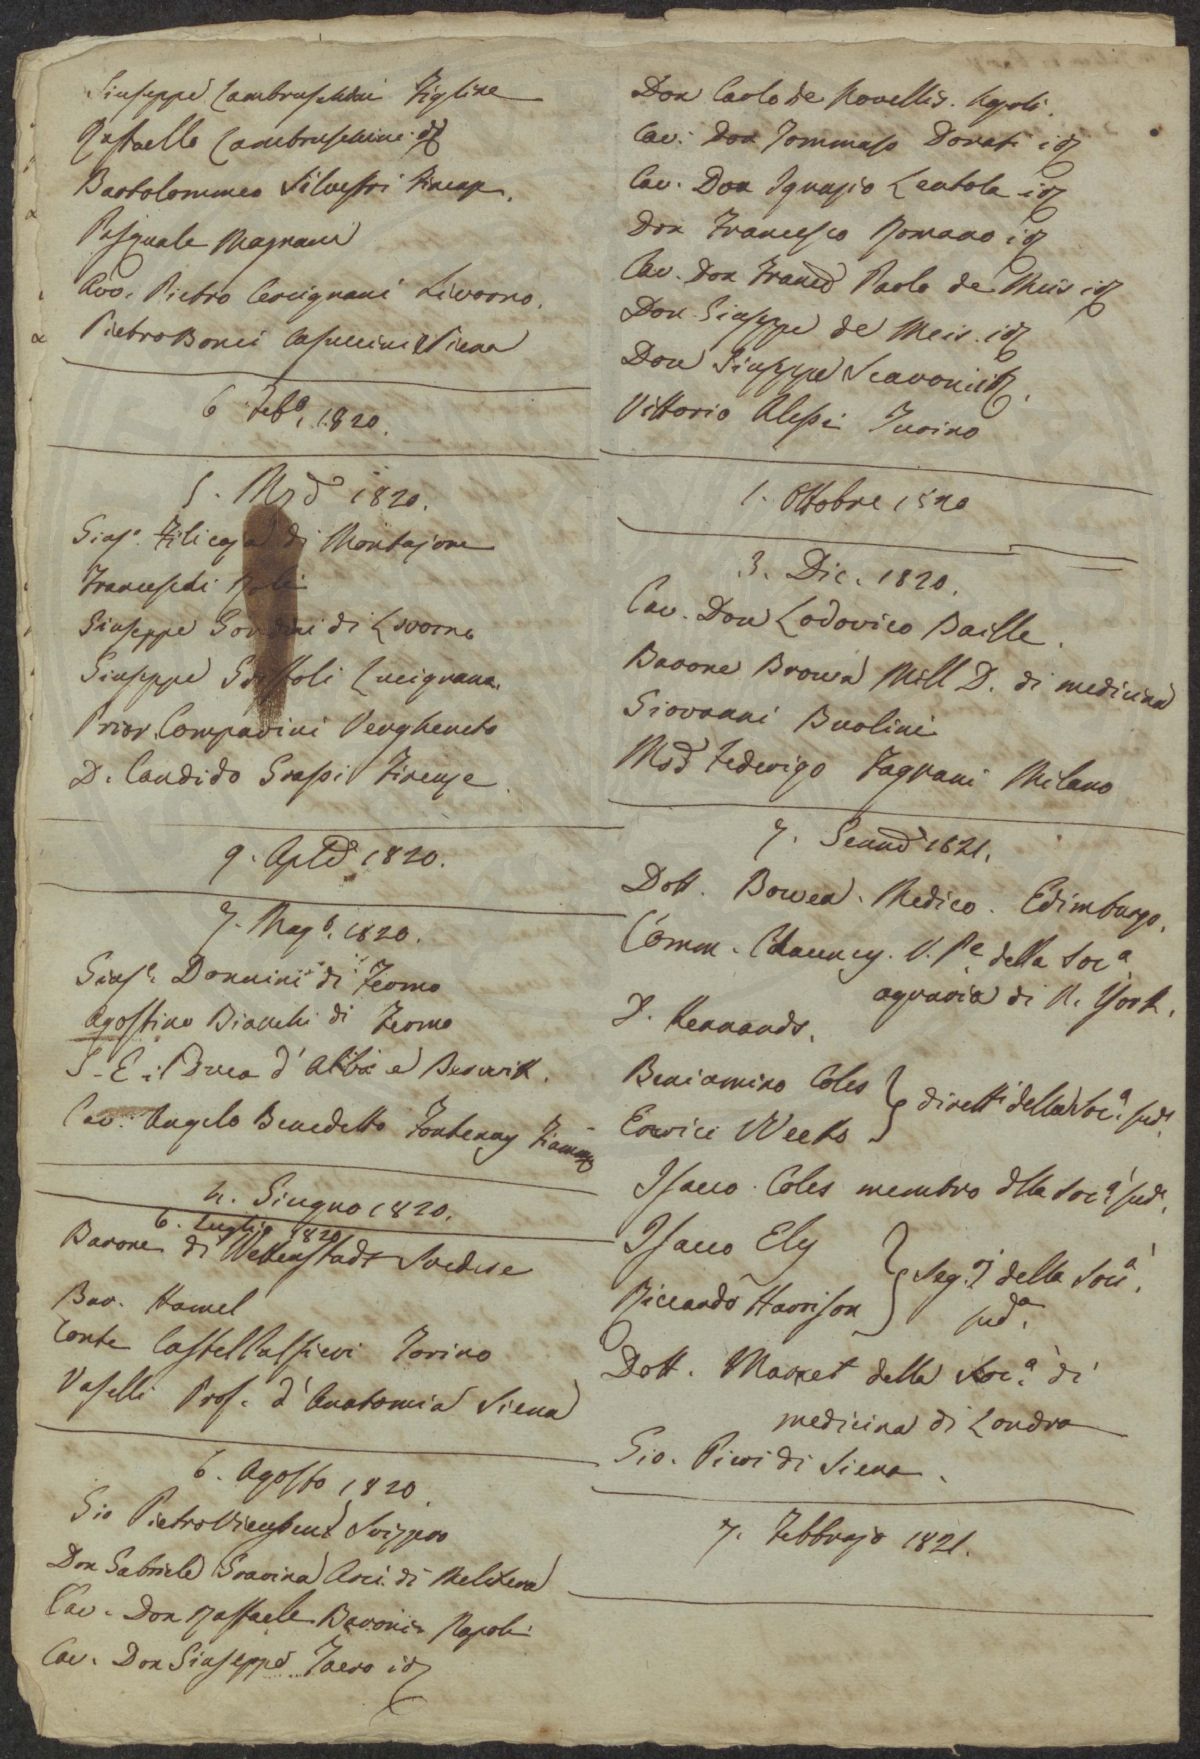 Giuseppe Lambruschini Figline
Raffaello Lambruschini id
Bartolommeo Silvestri Firenze.
Pasquale Magnani
Avv. Pietro Cercignani Livorno.
Pietro Bonci Casuccini Siena
6 Febo. 1820.
5. Mzo 1820.
Giuse. Filicaja di Montajone
Franceschi
Giuseppe di Livorno
Giuseppe Lucignano.
Prior. Comparini Verghereto
D. Candido Grassi Firenze
9. Aple 1820.
7. Mago. 1820.
Giuse. Donnini di Fermo
Agostino Bianchi di Fermo
S. E. il Duca d'Alba e Berwik.
Cav. Angelo Benedetto Fontenay
4. Giugno 1820.
6. Luglio 1820
Barone di Wetterstadt Svedese
Bar. Hamel
Conte Castell'Alfieri Torino
Vaselli Prof. d'Anatomia Siena
6. Agosto 1820.
Gio Pietro Vieusseux Svizzero
Don Gabriele Gravina Arci. di
Cav. Don Raffaele Baroni. Napoli
Cav. Don Giuseppe id
Don Carlo de Novellis. Napoli.
Cav. Don Tommaso Donati id
Cav. Don Ignazio Lentola id
Don Francesco Romano id
Cav. Don Franco Paolo de Meis id
Don Giuseppe de Meis. id
Don Giuseppe id.
Vittorio Torino
1. Ottobre 1820
3. Dic. 1820.
Cav. Don Lodovico Baille.
Barone Brown Mill D. di medicina
Giovanni Buolini
Federigo Fagnani Milano
7. Genno 1821.
Dott. Bowen. Medico. Edimburgo.
Comm. Chauncy. V. Pe. della Soca
agraria di N. York.
D.
Beniamino Coles } diretti della Soca. suda.
Weeks
Isacco Coles membro della Soca. suda.
Isacco Ely } Seg.j della Socà.
Riccardo Harrison suda.
Dott. Marcet della Soca. di
medicina di Londra
Gio. Pieri di Siena.
7. Febbrajo 1821.